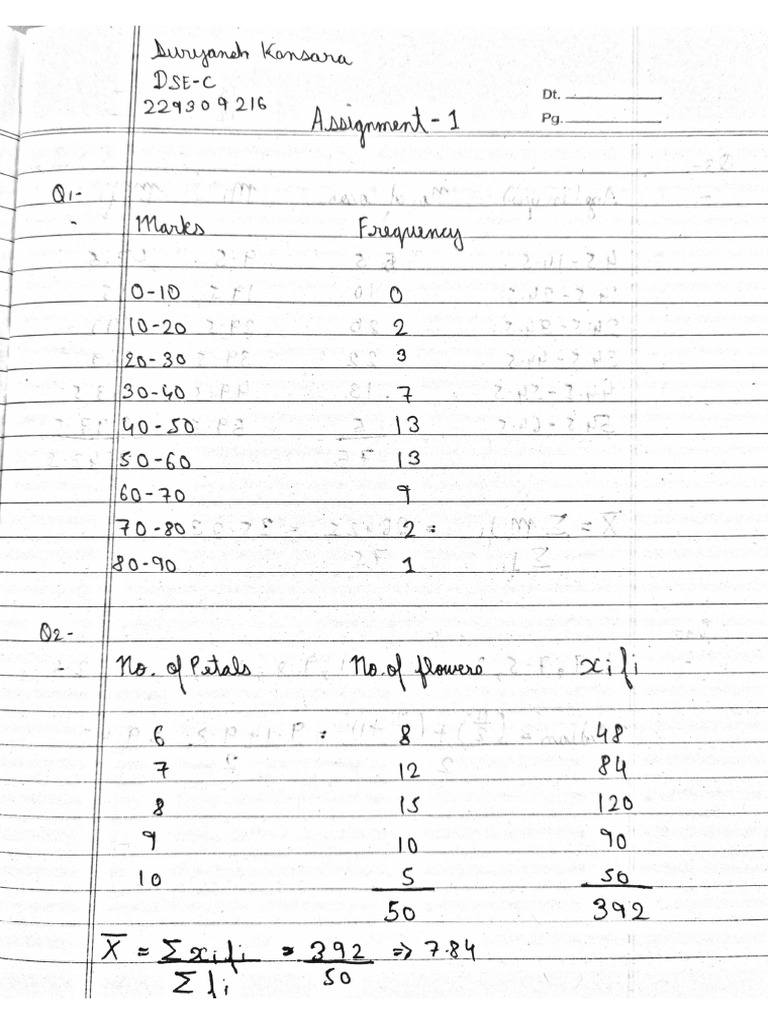 Suryansh Kansara
DSE-C
229309216
Dt.
Pg.
Assignment - 1
Q1-
- Marks Frequency
0-10 0
10-20 2
20-30 3
30-40 7
40-50 13
50-60 13
60-70 9
70-80 2
80-90 1
Q2-
- No. of Petals No. of flowers xifi
6 8 48
7 12 84
8 15 120
9 10 90
10 5 50
50 392
X̄ = Σxifi / Σfi = 392 / 50 => 7.84